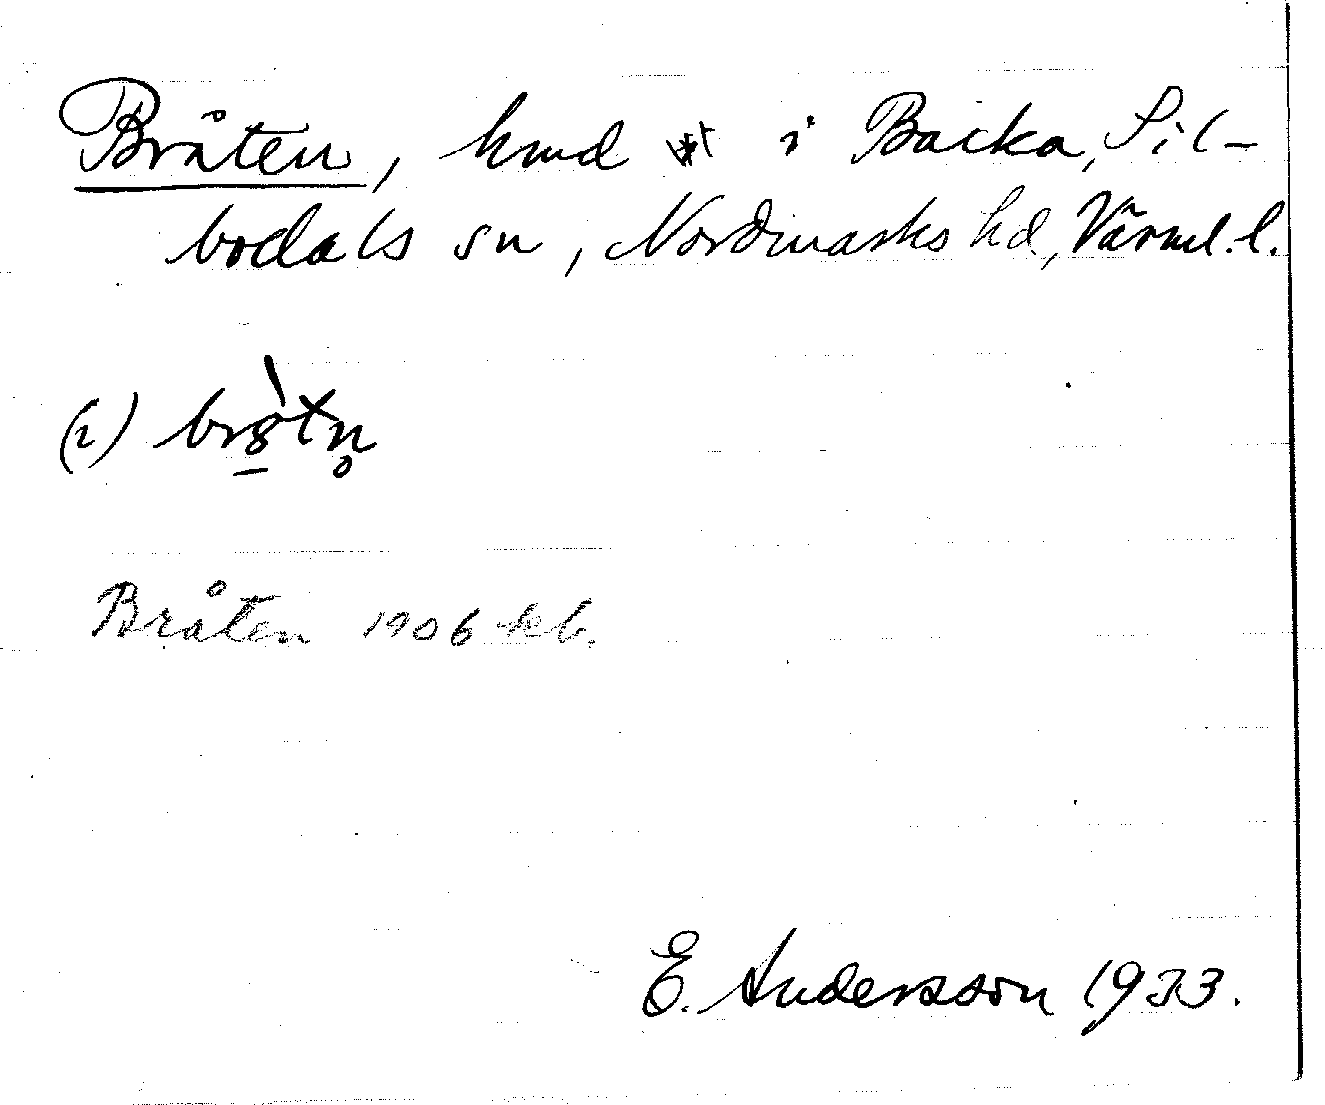 Bråten, hmd i Backa, Sil-
bodals sn, Nordmarks hd, Värml. l.
(2)
Bråten 1906 kb.
E. Andersson 1933.